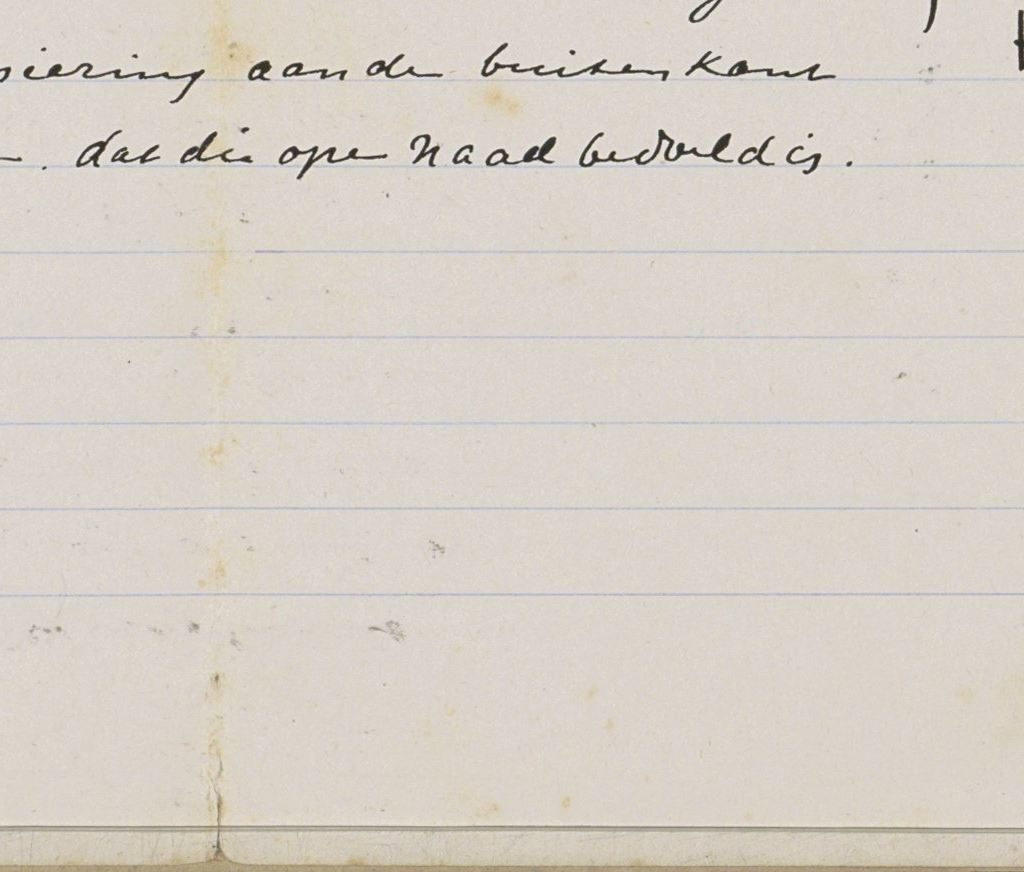 siering aan de buitenkant
. dat die open naad bedoeld is.